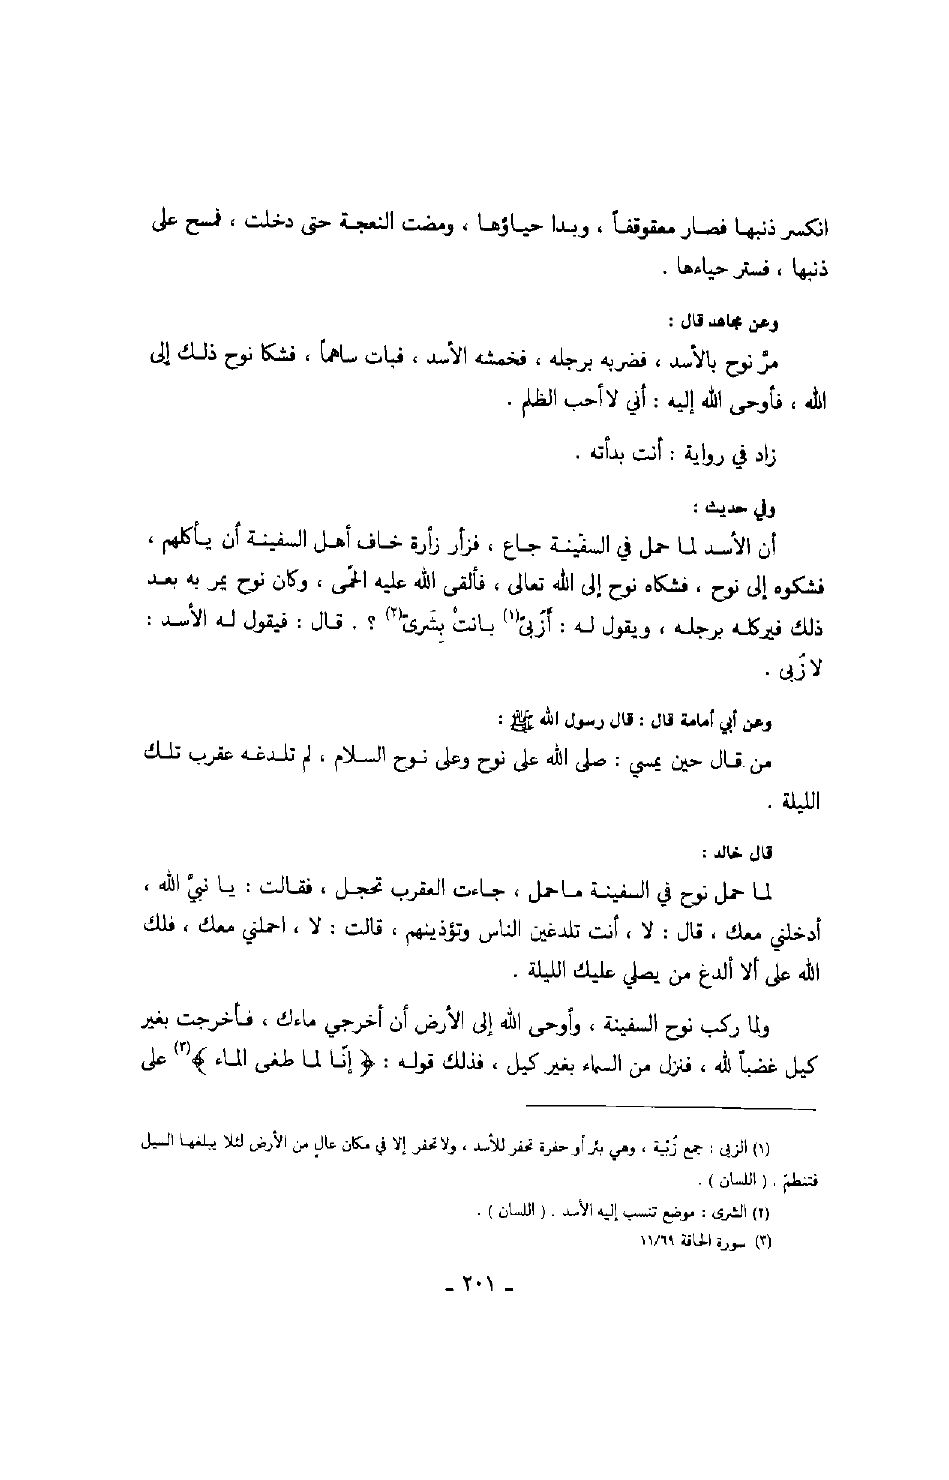 انكسر ذنبها فصار معقوفاً ، وبدا حياؤها ، ومضت النعجة حتى دخلت ، فمسح على
ذنبها ، فستر حياءها .
وعن مجاهد قال :
مرَّ نوح بالأسد ، فضربه برجله ، فخمشه الأسد ، فبات ساهماً ، فشكا نوح ذلك إلى
الله ، فأوحى الله إليه : أني لا أحب الظلم .
زاد في رواية : أنت بدأته .
وفي حديث :
أن الأسد لما حمل في السفينة جاع ، فزأر زأرة خاف أهل السفينة أن يأكلهم ،
فشكوه إلى نوح ، فشكاه نوح إلى الله تعالى ، فألقى الله عليه الحمّى ، وكان نوح يمر به بعد
ذلك فيركله برجله ، ويقول له : أزُبىً(١) بانتْ بِشَرى(٢) ؟ . قال : فيقول له الأسد :
لا زُبى .
وعن أبي أمامة قال : قال رسول الله ﷺ :
من قال حين يمسي : صلى الله على نوح وعلى نوح السلام ، لم تلدغه عقرب تلك
الليلة .
قال خالد :
لما حمل نوح في السفينة ماحمل ، جاءت العقرب تحجل ، فقالت : يا نبيَّ الله ،
أدخلني معك ، قال : لا ، أنت تلدغين الناس وتؤذينهم ، قالت : لا ، احملني معك ، فلك
الله على ألا ألدغ من يصلي عليك الليلة .
ولما ركب نوح السفينة ، وأوحى الله إلى الأرض أن أخرجي ماءك ، فأخرجت بغير
كيل غضباً لله ، فنزل من السماء بغير كيل ، فذلك قوله : ﴿ إنّا لما طغى الماء ﴾(٣) على
(١) الزبى : جمع زُبْية ، وهي بئر أو حفرة تحفر للأسد ، ولا تحفر إلا في مكان عالٍ من الأرض لئلا يبلغها السيل
فتنطمّ . ( اللسان ) .
(٢) الشرى : موضع تنسب إليه الأسد . ( اللسان ) .
(٣) سورة الحاقة ١١/٦٩
- ٢٠١ -